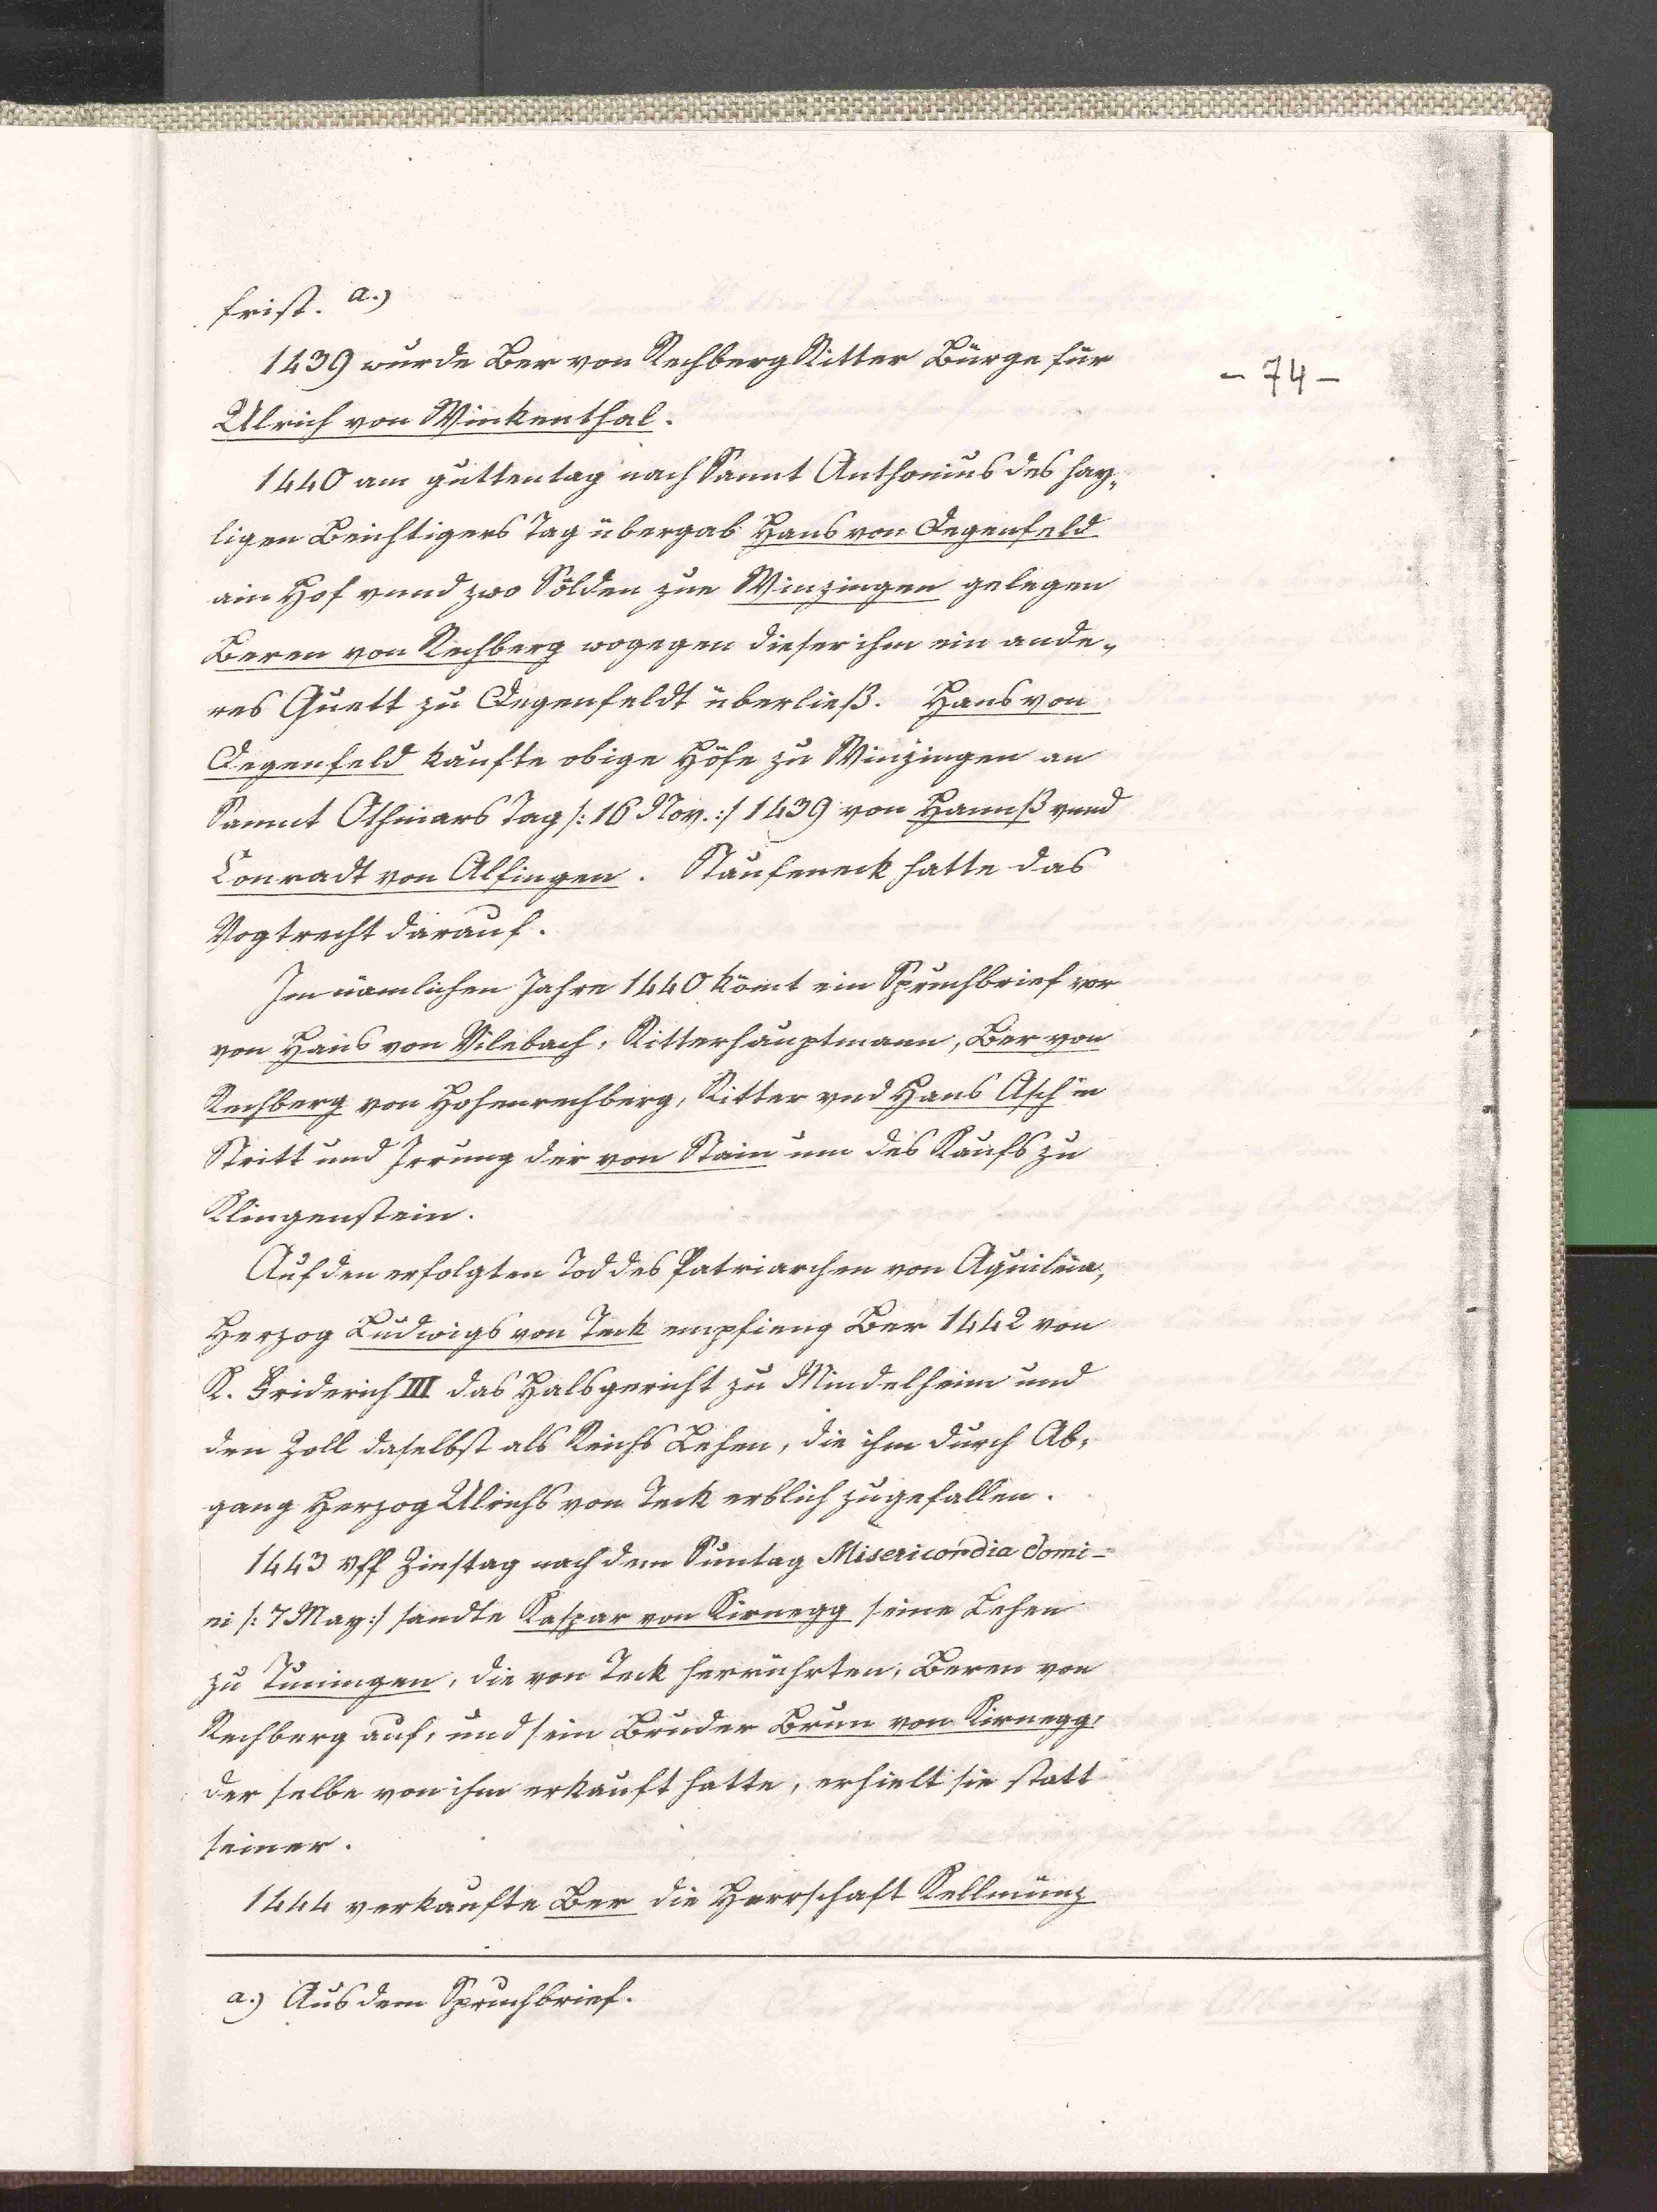 frist. a.)
1439 wurde Ber von Rechberg Ritter Bürge für
- 74 -
Ulrich von Winkenthal.
1440 am guttentag nach Sannt Anthonius des hay„
ligen Beichtigers Tag übergab Hans von Degenfeld
ain Hof vnnd zwo Sölden zue Winzingen gelegen
Beren von Rechberg wogegen dieser ihm ein ande„
res Guett zu Degenfeldt überließ. Hans von
Degenfeld kaufte obige Höfe zu Winzingen an
Sannt Othmars Tag /: 16 Nov. :/ 1439 von Hannß vnnd
Conradt von Alfingen. Staufeneck hatte das
Vogtrecht darauf.
Im nämlichen Jahre 1440 kömt ein Spruchbrief vor
von Hans von Vilebach, Ritterhauptmann, Ber von
Rechberg von Hohenrechberg, Ritter vnd Hans Asch in
Stritt und Irrung der von Stain um des Kaufs zu
Klingenstein.
Auf den erfolgten Tod des Patriarchen von Aquileia,
Herzog Ludwigs von Teck empfieng Ber 1442 von
K. Friderich III das Halsgericht zu Mindelheim und
den Zoll daselbst als Reichs Lehen, die ihm durch Ab„
gang Herzog Ulrichs von Teck erblich zugefallen.
1443 vff Zinstag nach dem Suntag Misericordia Domi-
ni /: 7 May :/ sandte Kaspar von Kirnegg seine Lehen
zu Tuningen, die von Teck herrührten, Beren von
Rechberg auf, und sein Bruder Brun von Kirnegg,
der selbe von ihm erkauft hatte, erhielt sie statt
seiner.
1444 verkaufte Ber die Herrschaft Kellmünz
a.) Aus dem Spruchbrief.